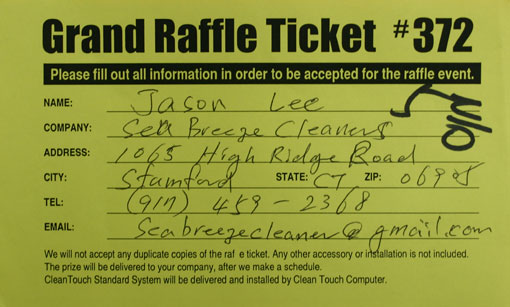 Grand Raffle Ticket #372
Please fill out all information in order to be accepted for the raffle event.
NAME: Jason Lee
COMPANY: Sea Breeze Cleaners
ADDRESS: 1065 High Ridge Road
CITY: Stamford STATE: CT ZIP:
TEL: (917) 459-2368
EMAIL: Seabreezecleaner@gmail.com
We will not accept any duplicate copies of the raf e ticket. Any other accessory or installation is not included.
The prize will be delivered to your company, after we make a schedule.
CleanTouch Standard System will be delivered and installed by Clean Touch Computer.